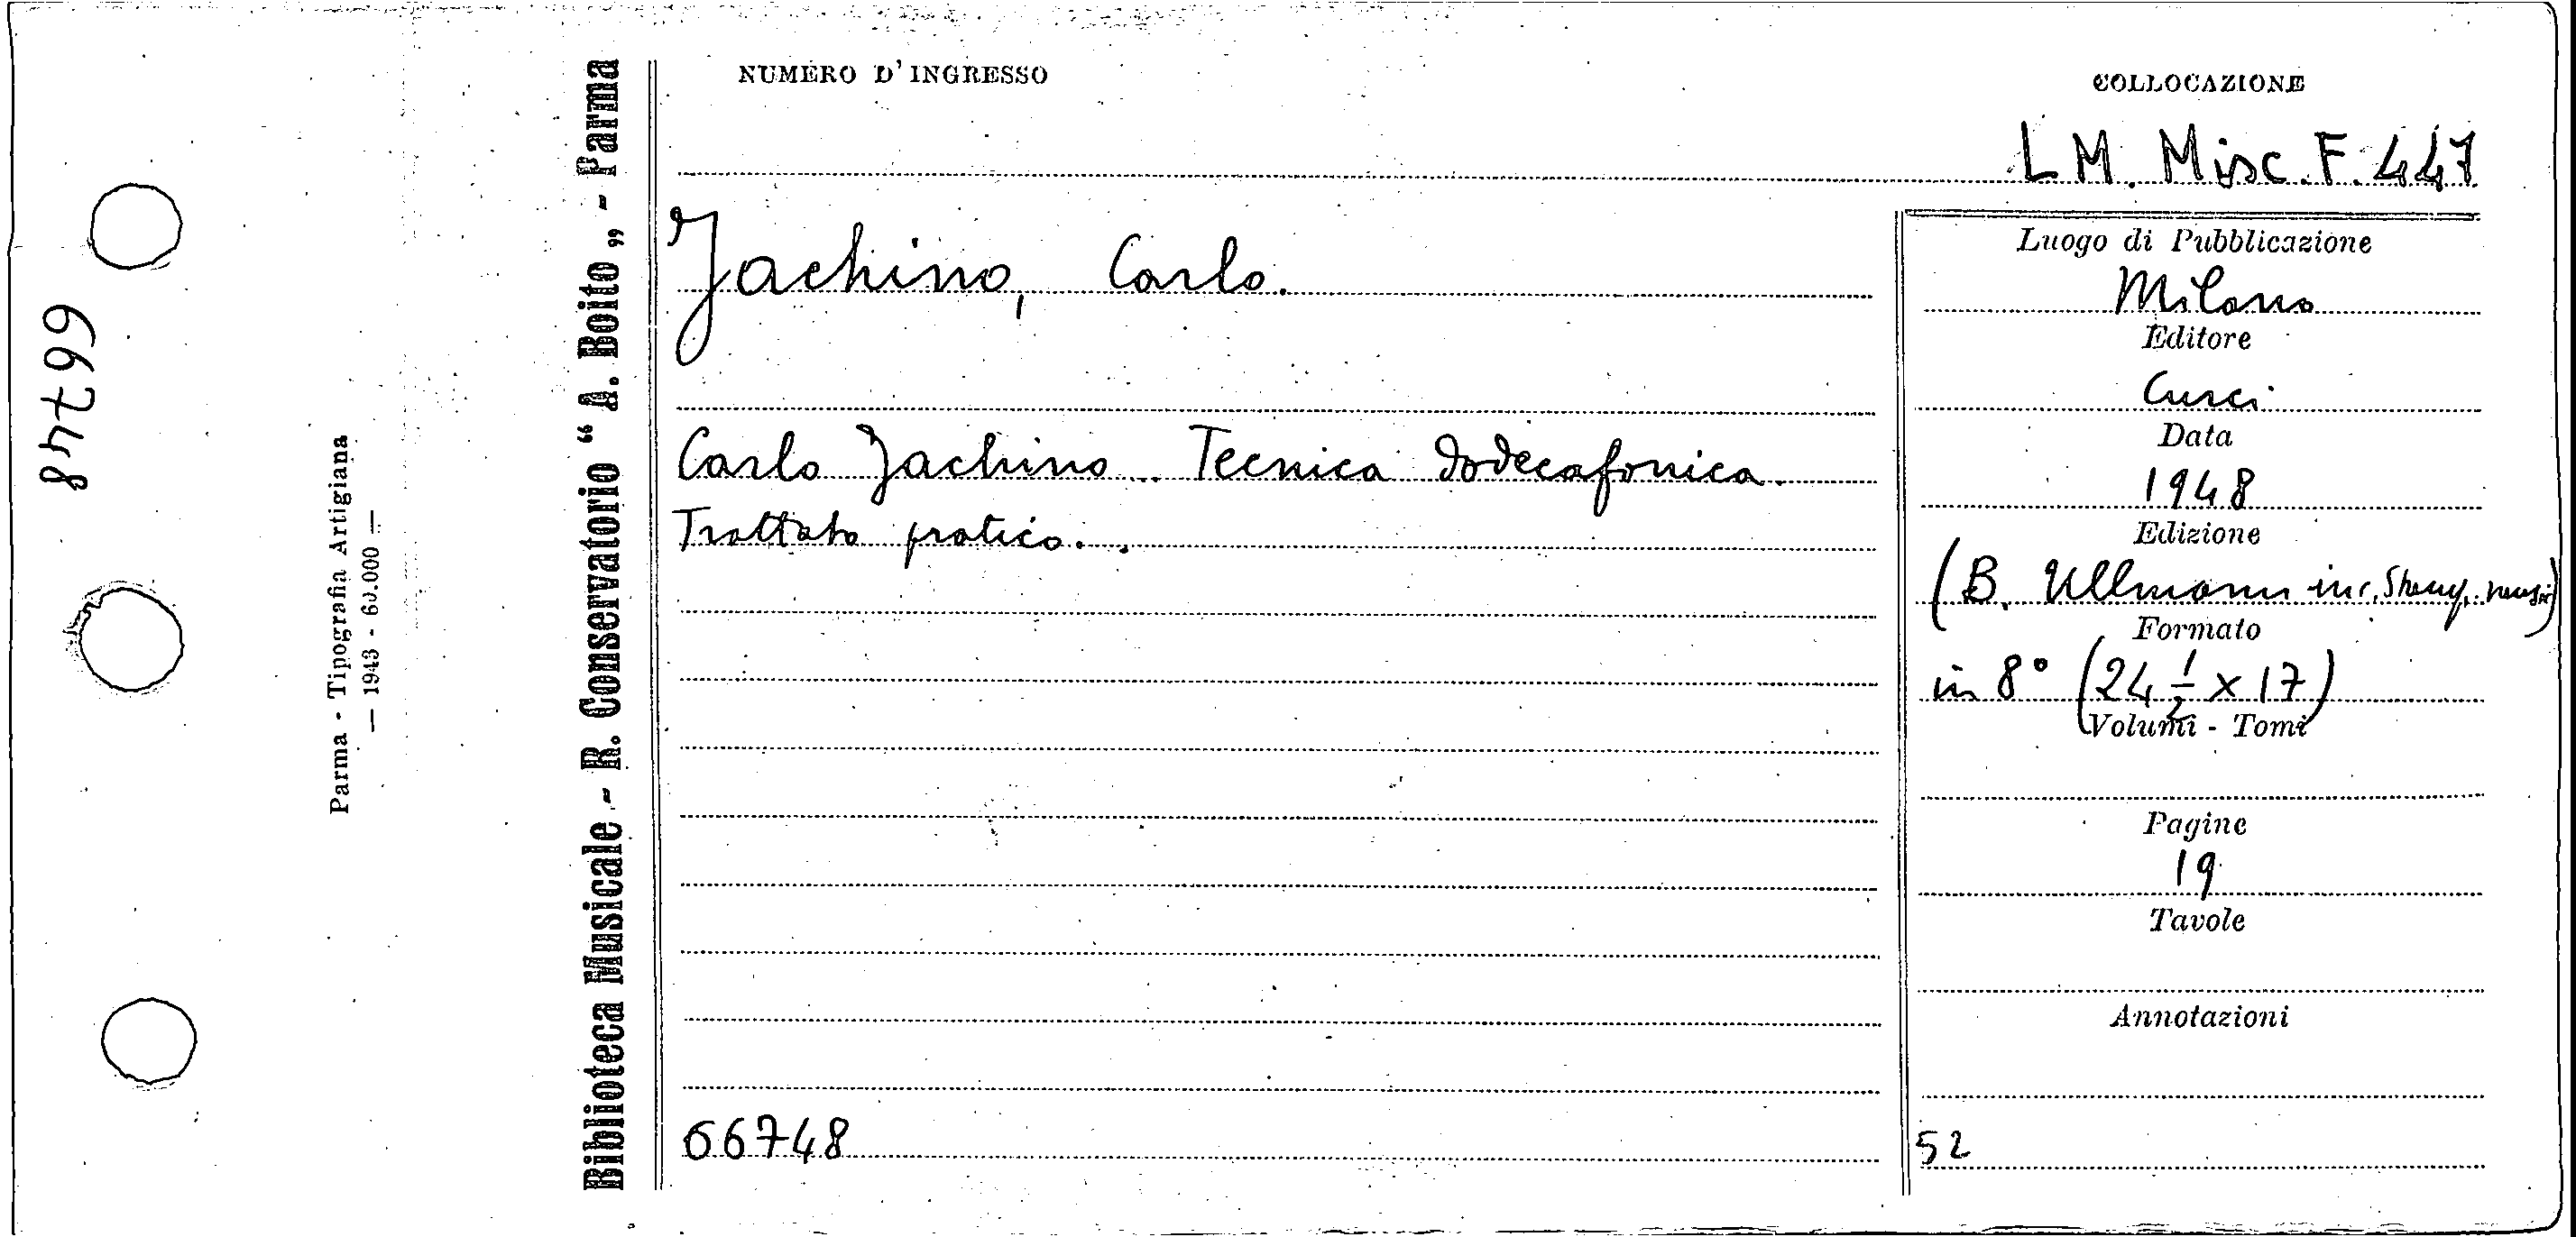 66748
Parma - Tipografia Artigiana
— 1943 - 60.000 —
Biblioteca Musicale - R. Conservatorio “ A. Boito „ - Parma
NUMERO D' INGRESSO
COLLOCAZIONE
LM. Misc. F. 447
Jachino, Carlo.
Carlo Jachino. Tecnica dodecafonica.
Trattato pratico.
66748
Luogo di Pubblicazione
Milano
Editore
Curci
Data
1948
Edizione
(B. Ullmann inc.
Formato
in 8° (24 1/2 x 17)
Volumi - Tomi
Pagine
19
Tavole
Annotazioni
52